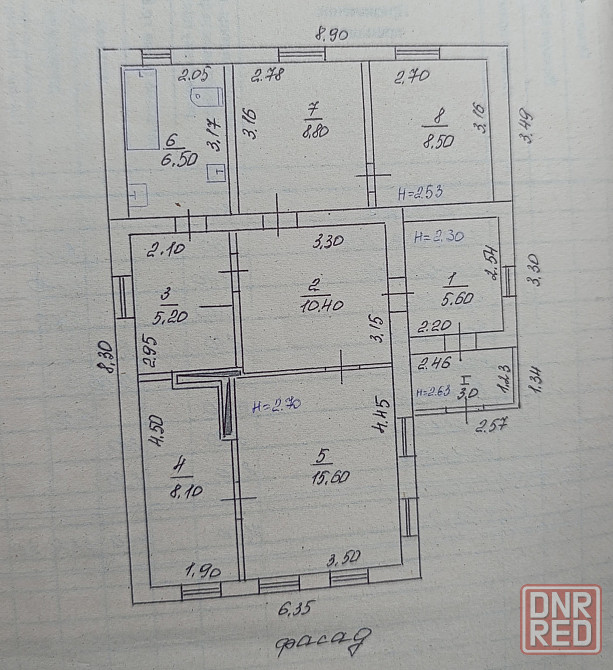 8.90
2.05
2.78
2.70
6
6.50
3,17
3,16
7
8.80
8
8.50
3,16
3,49
H=2.53
2.10
3,30
H=2.30
3
5,20
2
10.40
1
5.60
2.54
3,30
2,95
3,15
2.20
8,30
2.46
H=2.63
I
3,0
1,23
1,34
2.57
4,50
H=2.70
4,45
4
8.10
5
15.60
1,90
3,50
6,35
фасад
DNR
RED